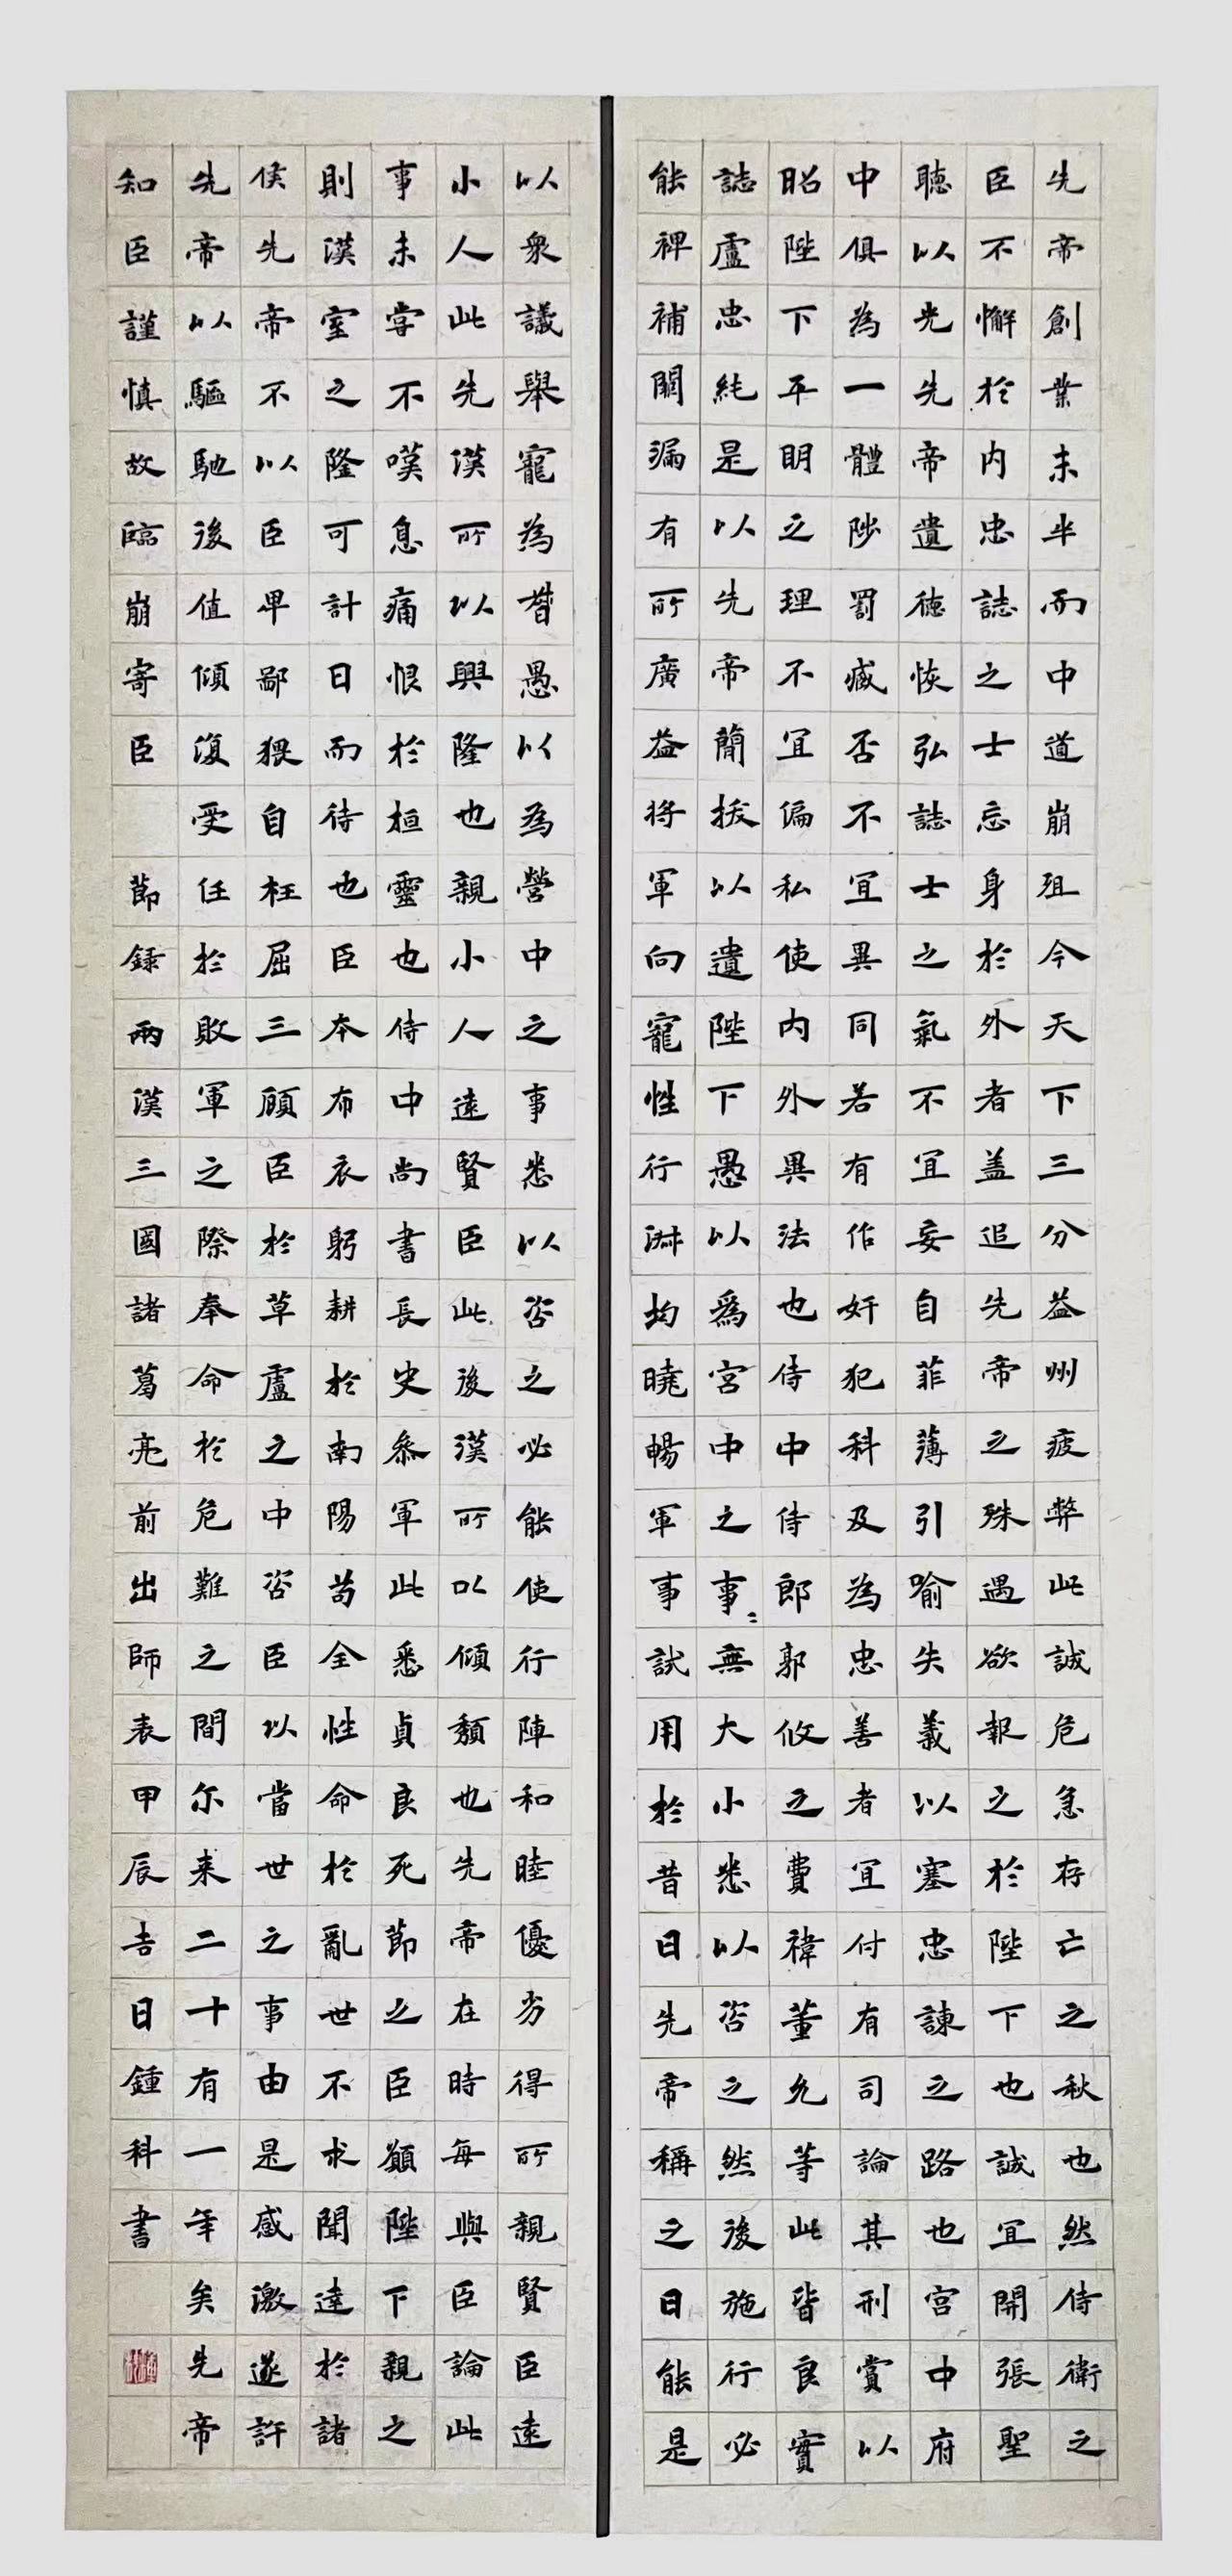 先帝創業未半而中道崩殂今天下三分益州疲弊此誠危急存亡之秋也然侍衛之
臣不懈於内忠誌之士忘身於外者盖追先帝之殊遇欲報之於陛下也誠宜開張聖
聽以光先帝遺德恢弘誌士之氣不宜妄自菲薄引喻失義以塞忠諫之路也宫中府
中俱為一體陟罰臧否不宜異同若有作奸犯科及為忠善者宜付有司論其刑賞以
昭陛下平明之理不宜偏私使内外異法也侍中侍郎郭攸之費禕董允等此皆良實
誌盧忠純是以先帝簡拔以遺陛下愚以爲宮中之事〻無大小悉以咨之然後施行必
能裨補闕漏有所廣益将軍向寵性行淋均曉暢軍事試用於昔日先帝稱之日能是
以衆議舉寵為督愚以為營中之事悉以咨之必能使行陣和睦優劣得所親賢臣遠
小人此先漢所以興隆也親小人遠賢臣此後漢所以傾頹也先帝在時每與臣論此
事未嘗不嘆息痛恨於桓靈也侍中尚書長史參軍此悉貞良死節之臣願陛下親之
則漢室之隆可計日而待也臣本布衣躬耕於南陽苟全性命於亂世不求聞達於諸
侯先帝不以臣卑鄙猥自枉屈三顧臣於草盧之中咨臣以當世之事由是感激遂許
先帝以驅馳後值傾復受任於敗軍之際奉命於危難之間尔来二十有一年矣先帝
知臣謹慎故臨崩寄臣 節録兩漢三國諸葛亮前出師表甲辰吉日鍾科書